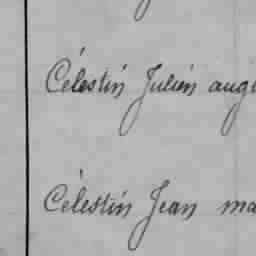 Célestin Julien aug
Célestin Jean ma